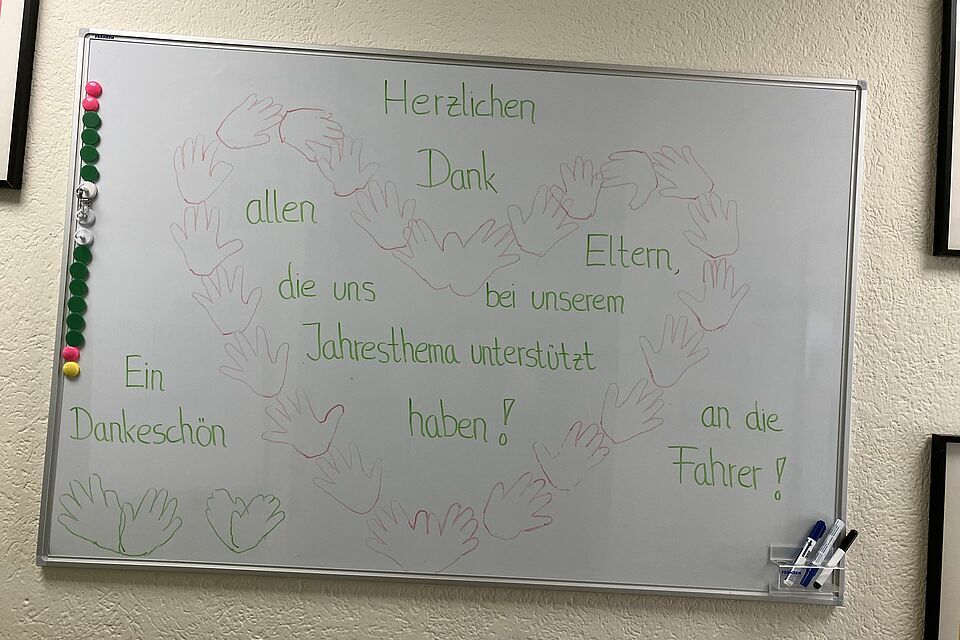 Herzlichen
Dank
allen
Eltern,
die uns bei unserem
Jahresthema unterstützt
haben!
Ein
Dankeschön
an die
Fahrer!